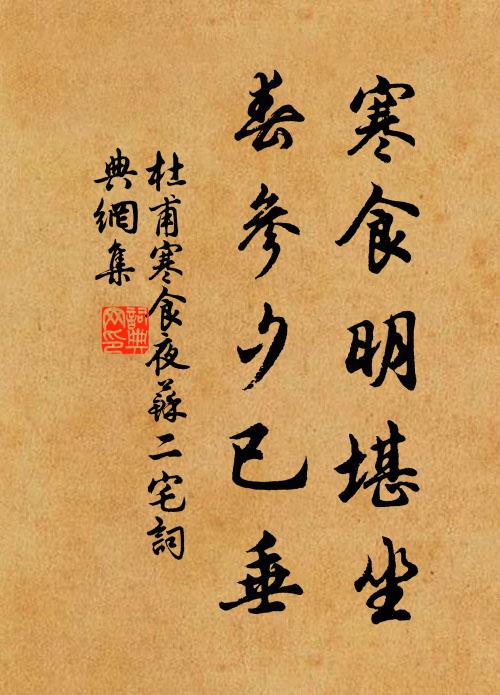 寒食明堪坐
春參夕已垂
杜甫寒食夜蘇二宅詞
典網集
詞典
网印